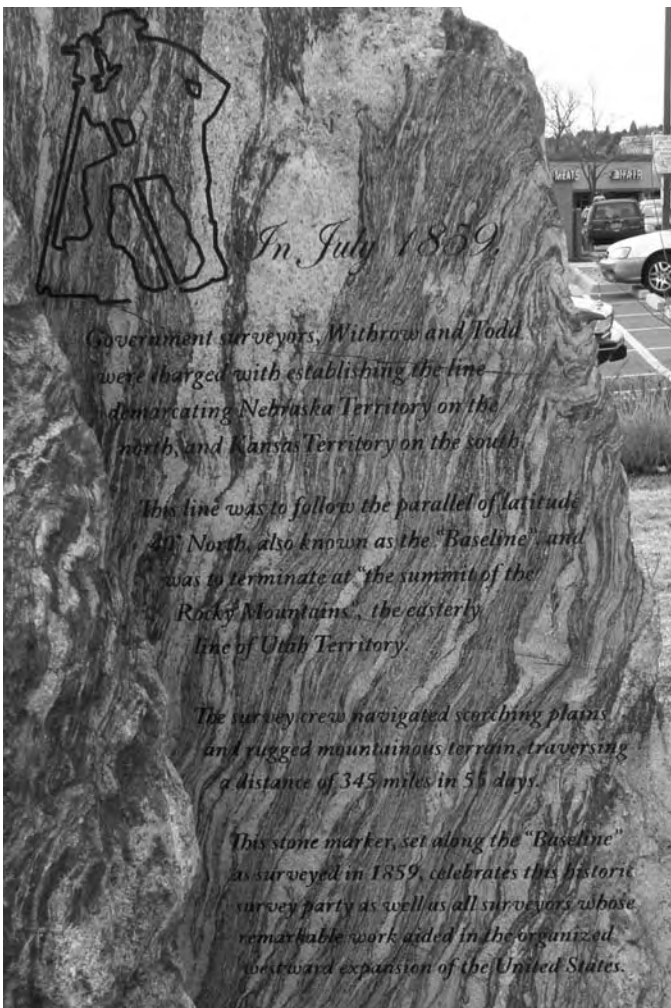 MEATS HAIR
In July 1859,
Government surveyors, Withrow and Todd
were charged with establishing the line
demarcating Nebraska Territory on the
north, and Kansas Territory on the south.
This line was to follow the parallel of latitude
40° North, also known as the "Baseline", and
was to terminate at "the summit of the
Rocky Mountains", the easterly
line of Utah Territory.
The survey crew navigated scorching plains
and rugged mountainous terrain, traversing
a distance of 345 miles in 55 days.
This stone marker, set along the "Baseline"
as surveyed in 1859, celebrates this historic
survey party as well as all surveyors whose
remarkable work aided in the organized
westward expansion of the United States.